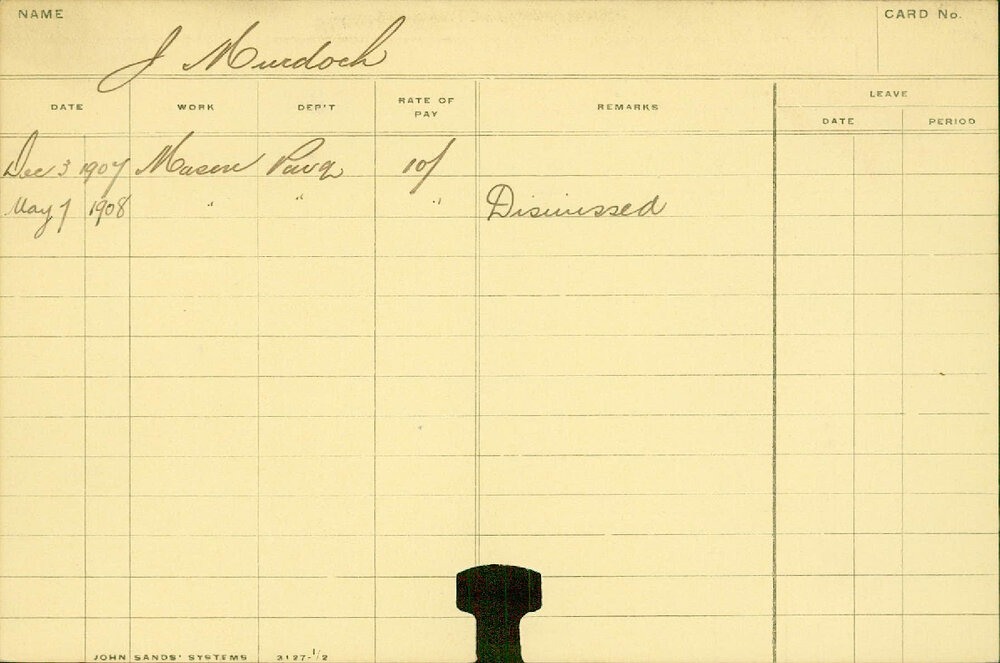 NAME
CARD No.
J Murdoch
DATE WORK DEP'T RATE OF PAY REMARKS LEAVE
DATE PERIOD
Dec 3 1907 Mason Pavg 10/
May 7 1908 " " " Dismissed
JOHN SANDS' SYSTEMS 3127-1/2